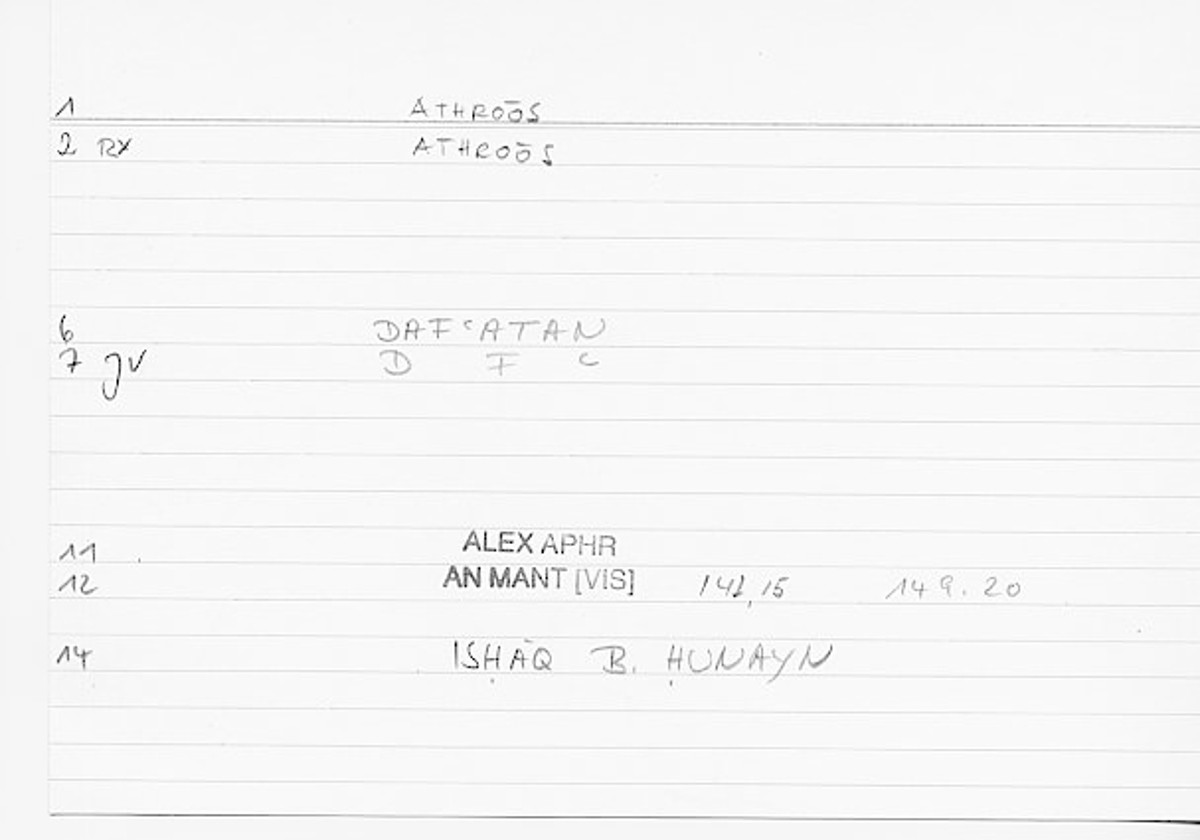 1 ATHROŌS
2 RX ATHROŌS
6 DAFʿATAN
7 JV D F ʿ
11 ALEX APHR
12 AN MANT [VIS] 141,15 149.20
14 ISḤĀQ B. ḤUNAYN